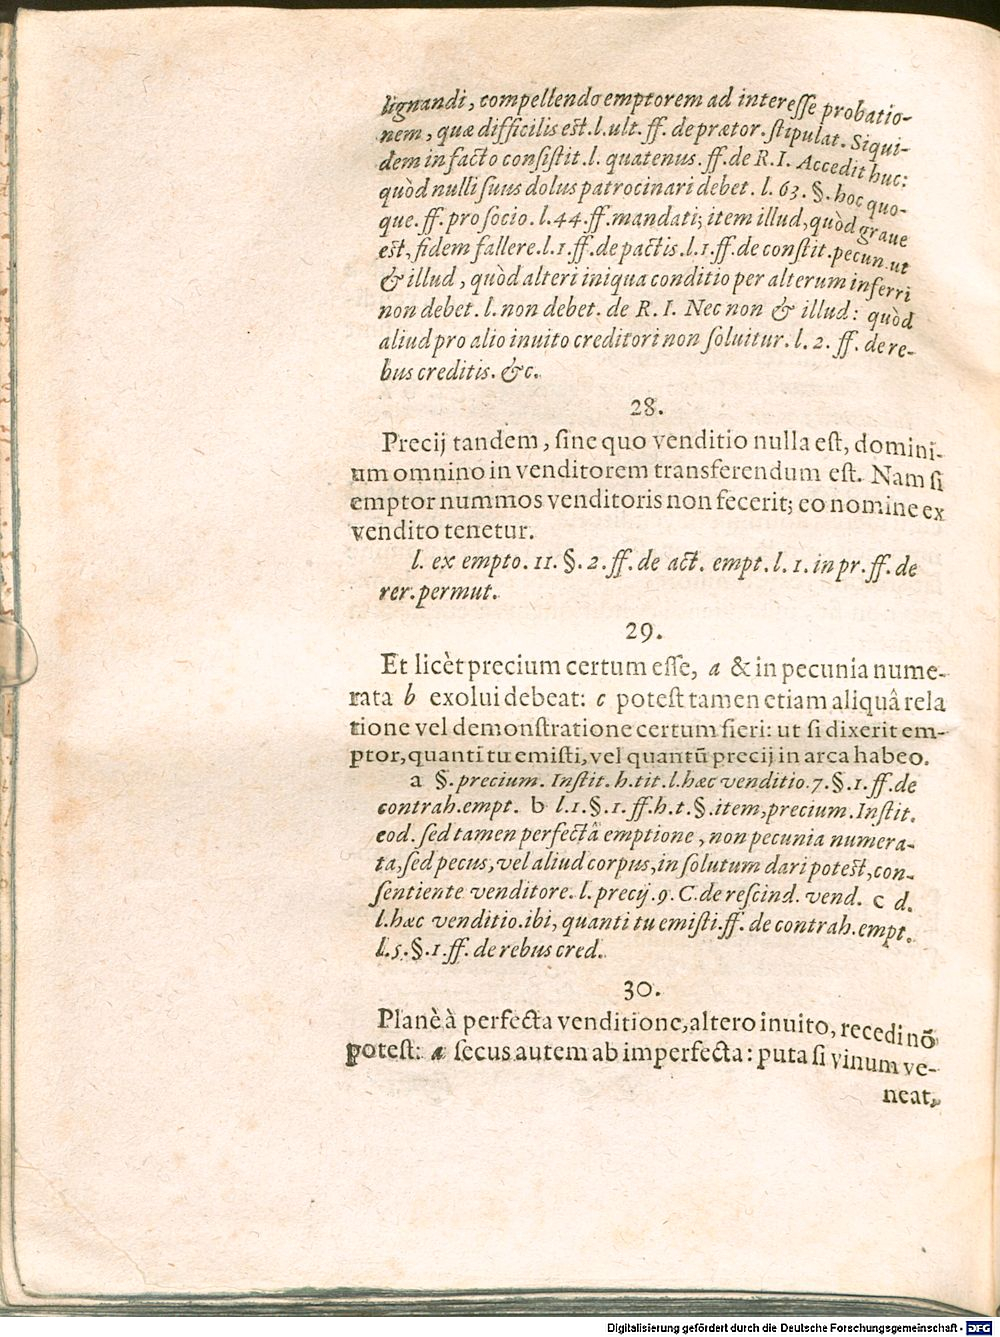 lignandi, compellendo emptorem ad interesse probatio-
nem, quæ difficilis est. l. ult. ff. de prætor. stipulat. Siqui-
dem in facto consistit. l. quatenus. ff. de R. I. Accedit huc:
quòd nulli suus dolus patrocinari debet. l. 63. §. hoc quo-
que. ff. pro socio. l. 44. ff. mandati; item illud, quòd graue
est, fidem fallere. l. 1. ff. de pactis. l. 1. ff. de constit. pecun. ut
& illud, quòd alteri iniqua conditio per alterum inferri
non debet. l. non debet. de R. I. Nec non & illud: quòd
aliud pro alio inuito creditori non soluitur. l. 2. ff. de re-
bus creditis. &c.
28.
Precij tandem, sine quo venditio nulla est, domini-
um omnino in venditorem transferendum est. Nam si
emptor nummos venditoris non fecerit; eo nomine ex
vendito tenetur.
l. ex empto. 11. §. 2. ff. de act. empt. l. 1. in pr. ff. de
rer. permut.
29.
Et licèt precium certum esse, a & in pecunia nume-
rata b exolui debeat: c potest tamen etiam aliquâ rela
tione vel demonstratione certum fieri: ut si dixerit em-
ptor, quanti tu emisti, vel quantũ precij in arca habeo.
a §. precium. Instit. h. tit. l. hæc venditio. 7. §. 1. ff. de
contrah. empt. b l. 1. §. 1. ff. h. t. §. item, precium. Instit.
eod. sed tamen perfectâ emptione, non pecunia numera-
ta, sed pecus, vel aliud corpus, in solutum dari potest, con-
sentiente venditore. l. precij. 9. C. de rescind. vend. c d.
l. hæc venditio. ibi, quanti tu emisti. ff. de contrah. empt.
l. 5. §. 1. ff. de rebus cred.
30.
Planè à perfecta venditione, altero inuito, recedi nõ
potest: a secus autem ab imperfecta: puta si vinum ve-
neat,
Digitalisierung gefördert durch die Deutsche Forschungsgemeinschaft - DFG